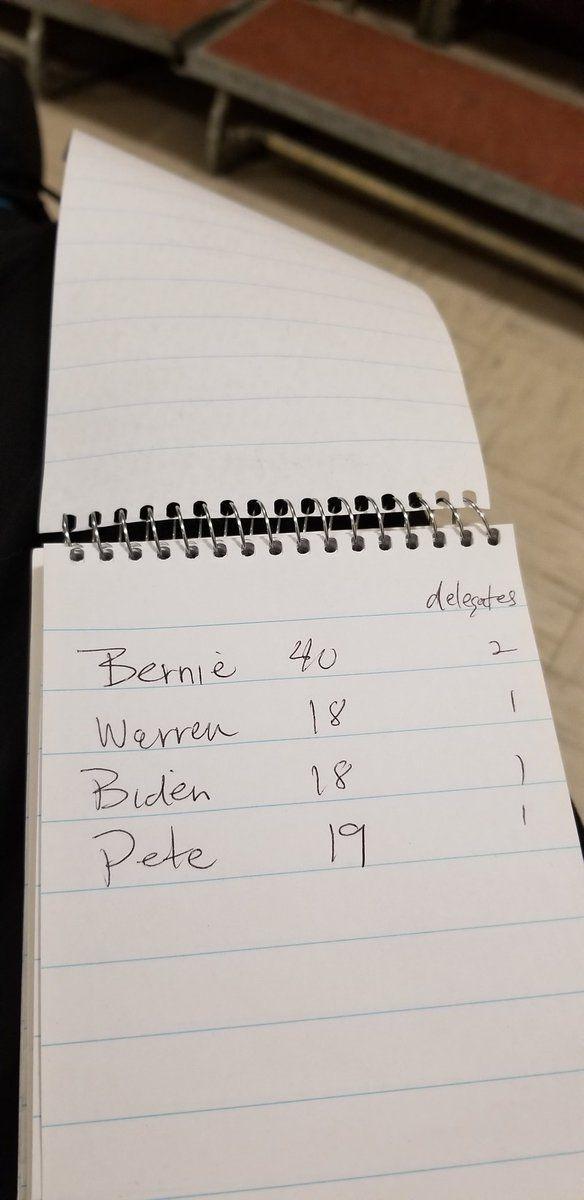 delegates
Bernie 40 2
Warren 18 1
Biden 18 1
Pete 19 1